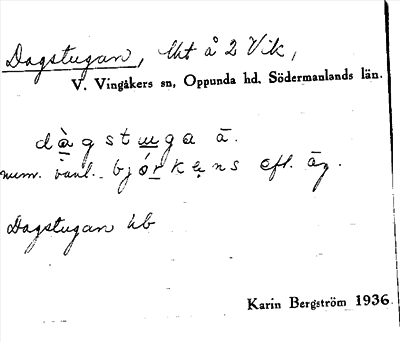 Dagstugan, lht å 2 Vik,
V. Vingåkers sn, Oppunda hd. Södermanlands län.
dàgstuga ā.
num. vanl. bjórkens eft. äg.
Dagstugan hb
Karin Bergström 1936.